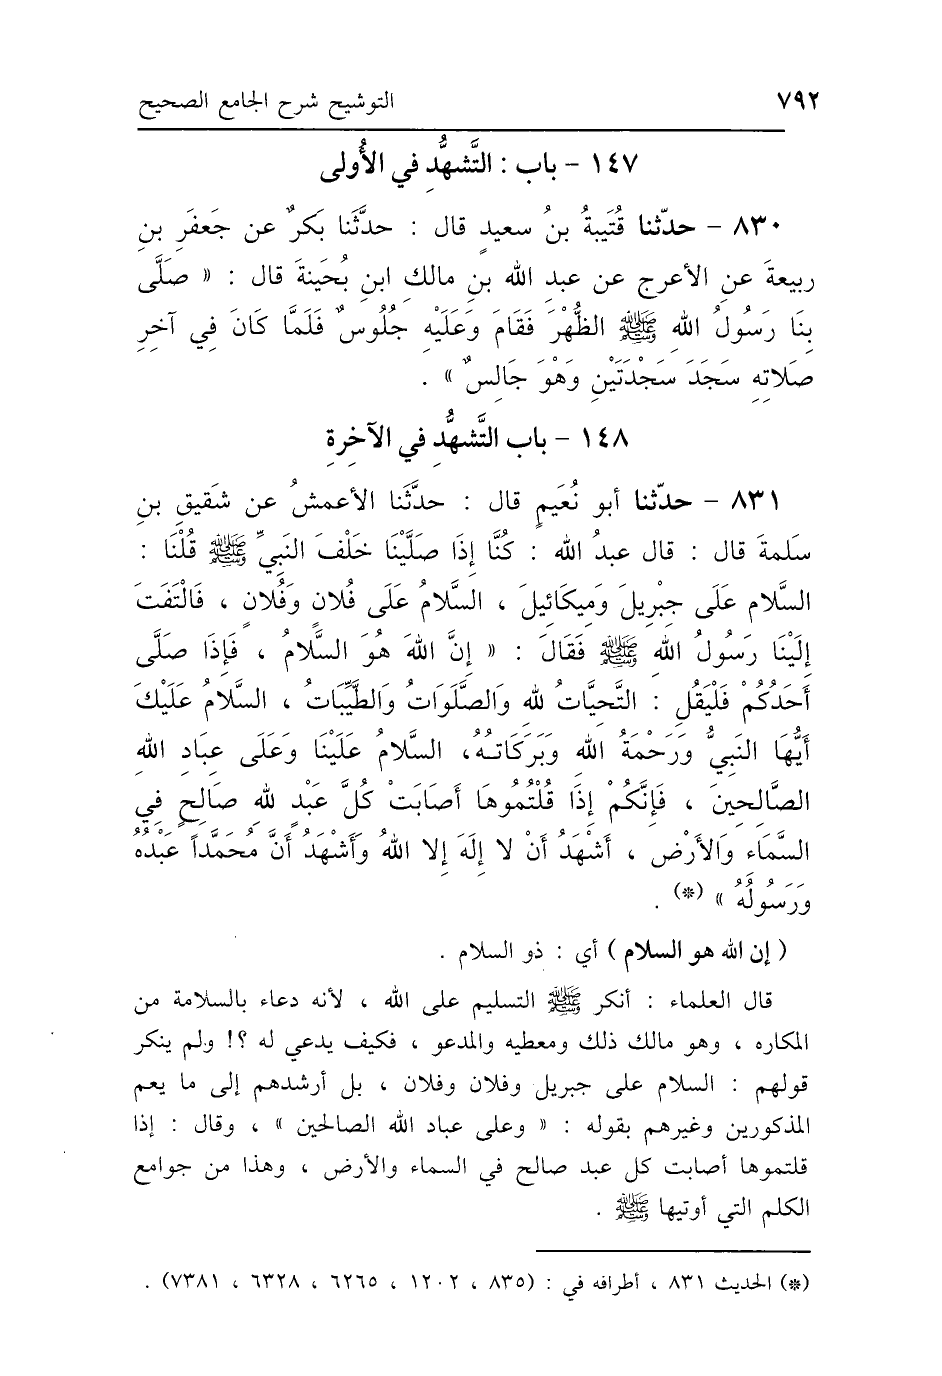 ٧٩٢ التوشيح شرح الجامع الصحيح
١٤٧ - باب : التَّشهُّدِ في الأُولى
٨٣٠ - حدّثنا قُتَيبةُ بنُ سعيدٍ قال : حدَّثَنا بَكرٌ عن جَعفَرِ بنِ
ربيعةَ عنِ الأعرجِ عن عبدِ الله بنِ مالكٍ ابنِ بُحَينةَ قال : « صَلَّى
بِنَا رَسُولُ اللهِ ﷺ الظُّهْرَ فَقَامَ وَعَلَيْهِ جُلُوسٌ فَلَمَّا كَانَ فِي آخِرِ
صَلاتِهِ سَجَدَ سَجْدَتَيْنِ وَهْوَ جَالِسٌ » .
١٤٨ - باب التَّشهُّدِ في الآخِرةِ
٨٣١ - حدّثنا أبو نُعَيمٍ قال : حدَّثَنا الأعمشُ عن شَقيقِ بنِ
سَلمةَ قال : قال عبدُ الله : كُنَّا إِذَا صَلَّيْنَا خَلْفَ النَّبِيِّ ﷺ قُلْنَا :
السَّلامِ عَلَى جِبْرِيلَ وَمِيكَائِيلَ ، السَّلامُ عَلَى فُلانٍ وَفُلانٍ ، فَالْتَفَتَ
إِلَيْنَا رَسُولُ اللهِ ﷺ فَقَالَ : « إِنَّ اللهَ هُوَ السَّلامُ ، فَإِذَا صَلَّى
أَحَدُكُمْ فَلْيَقُلِ : التَّحِيَّاتُ لِلهِ وَالصَّلَوَاتُ وَالطَّيِّبَاتُ ، السَّلامُ عَلَيْكَ
أَيُّهَا النَّبِيُّ وَرَحْمَةُ اللهِ وَبَرَكَاتُهُ، السَّلامُ عَلَيْنَا وَعَلَى عِبَادِ اللهِ
الصَّالِحِينَ ، فَإِنَّكُمْ إِذَا قُلْتُمُوهَا أَصَابَتْ كُلَّ عَبْدٍ لِلهِ صَالِحٍ فِي
السَّمَاءِ وَالأَرْضِ ، أَشْهَدُ أَنْ لا إِلَهَ إِلا اللهُ وَأَشْهَدُ أَنَّ مُحَمَّداً عَبْدُهُ
وَرَسُولُهُ » (*) .
( إن الله هو السلام ) أي : ذو السلام .
قال العلماء : أنكر ﷺ التسليم على الله ، لأنه دعاء بالسلامة من
المكاره ، وهو مالك ذلك ومعطيه والمدعو ، فكيف يدعي له ؟! ولم ينكر
قولهم : السلام على جبريل وفلان وفلان ، بل أرشدهم إلى ما يعم
المذكورين وغيرهم بقوله : « وعلى عباد الله الصالحين » ، وقال : إذا
قلتموها أصابت كل عبد صالح في السماء والأرض ، وهذا من جوامع
الكلم التي أوتيها ﷺ .
(*) الحديث ٨٣١ ، أطرافه في : (٨٣٥ ، ١٢٠٢ ، ٦٢٦٥ ، ٦٣٢٨ ، ٧٣٨١) .